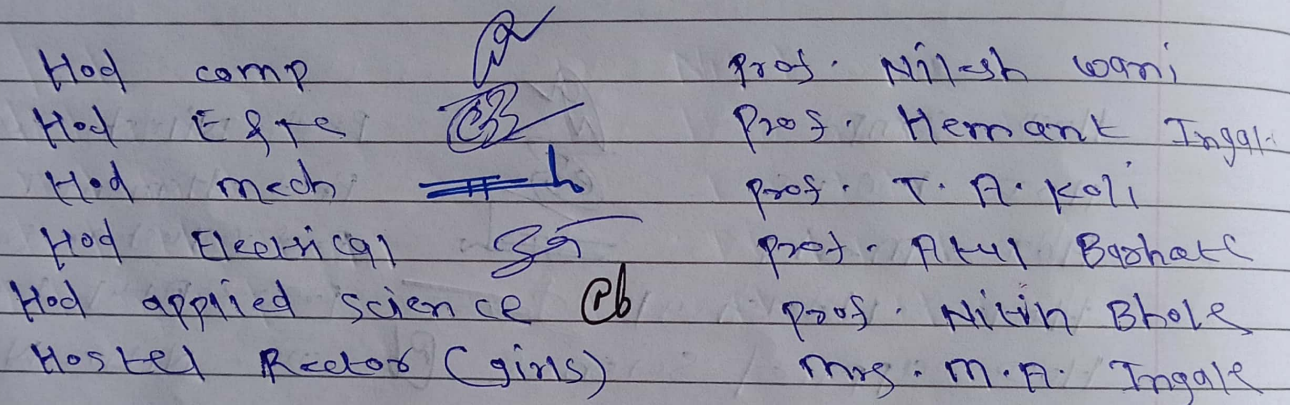 Hod comp prof. Nilesh wani
Hod E&Tc Prof. Hemant Ingale
Hod mech prof. T. A. Koli
Hod Electrical prof. Atul Barhate
Hod applied science prof. Nitin Bhole
Hostel Rector (girls) Mrs. M.A. Ingale